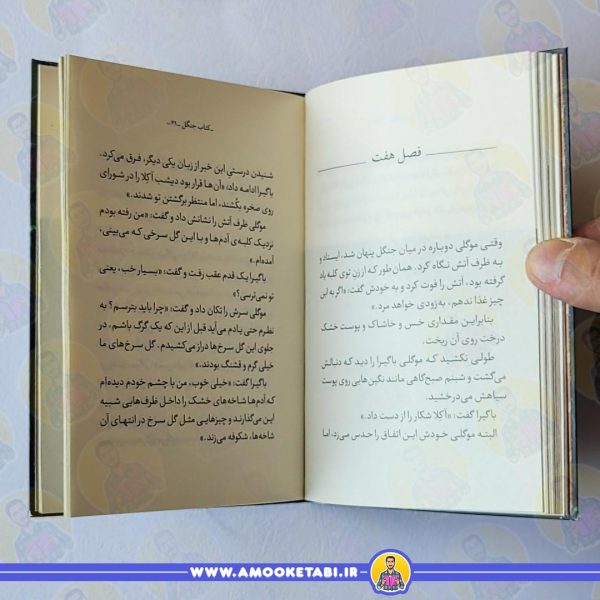 فصل هفت
وقتی موگلی دوباره در میان جنگل پنهان شد، ایستاد و
به ظرف آتش نگاه کرد. همان‌طور که از زن توی کلبه یاد
گرفته بود، آتش را فوت کرد و به خودش گفت: «اگر به این
چیز غذا ندهم، به‌زودی خواهد مرد.»
بنابراین مقداری خس و خاشاک و پوست خشک
درخت روی آن ریخت.
طولی نکشید که موگلی باگیرا را دید که دنبالش
می‌گشت و شبنم صبح‌گاهی مانند نگین‌هایی روی پوست
سیاهش می‌درخشید.
باگیرا گفت: «آکِلا شکار را از دست داد.»
البته موگلی خودش این اتفاق را حدس می‌زد، اما
ـ کتاب جنگل ـ ۶۹ ـ
شنیدن درستی این خبر از زبان یکی دیگر، فرق می‌کرد.
باگیرا ادامه داد: «آن‌ها قرار بود دیشب آکِلا را در شورای
روی صخره بکُشند، اما منتظر برگشتن تو شدند.»
موگلی ظرف آتش را نشانش داد و گفت: «من رفته بودم
نزدیک کلبه‌ی آدم‌ها و با این گل سرخی که می‌بینی،
آمده‌ام.»
باگیرا یک قدم عقب رفت و گفت: «بسیار خب، یعنی
تو نمی‌ترسی؟»
موگلی سرش را تکان داد و گفت: «چرا باید بترسم؟ به
نظرم حتی یادم می‌آید قبل از این که یک گرگ باشم، در
جلوی این گل سرخ‌ها دراز می‌کشیدم. گل سرخ‌های ما
خیلی گرم و قشنگ بودند.»
باگیرا گفت: «خیلی خوب، من با چشم خودم دیده‌ام
که آدم‌ها شاخه‌های خشک را داخل ظرف‌هایی شبیه
این می‌گذارند و چیزهایی مثل گل سرخ در انتهای آن
شاخه‌ها، شکوفه می‌زند.»
WWW.AMOOKETABI.IR